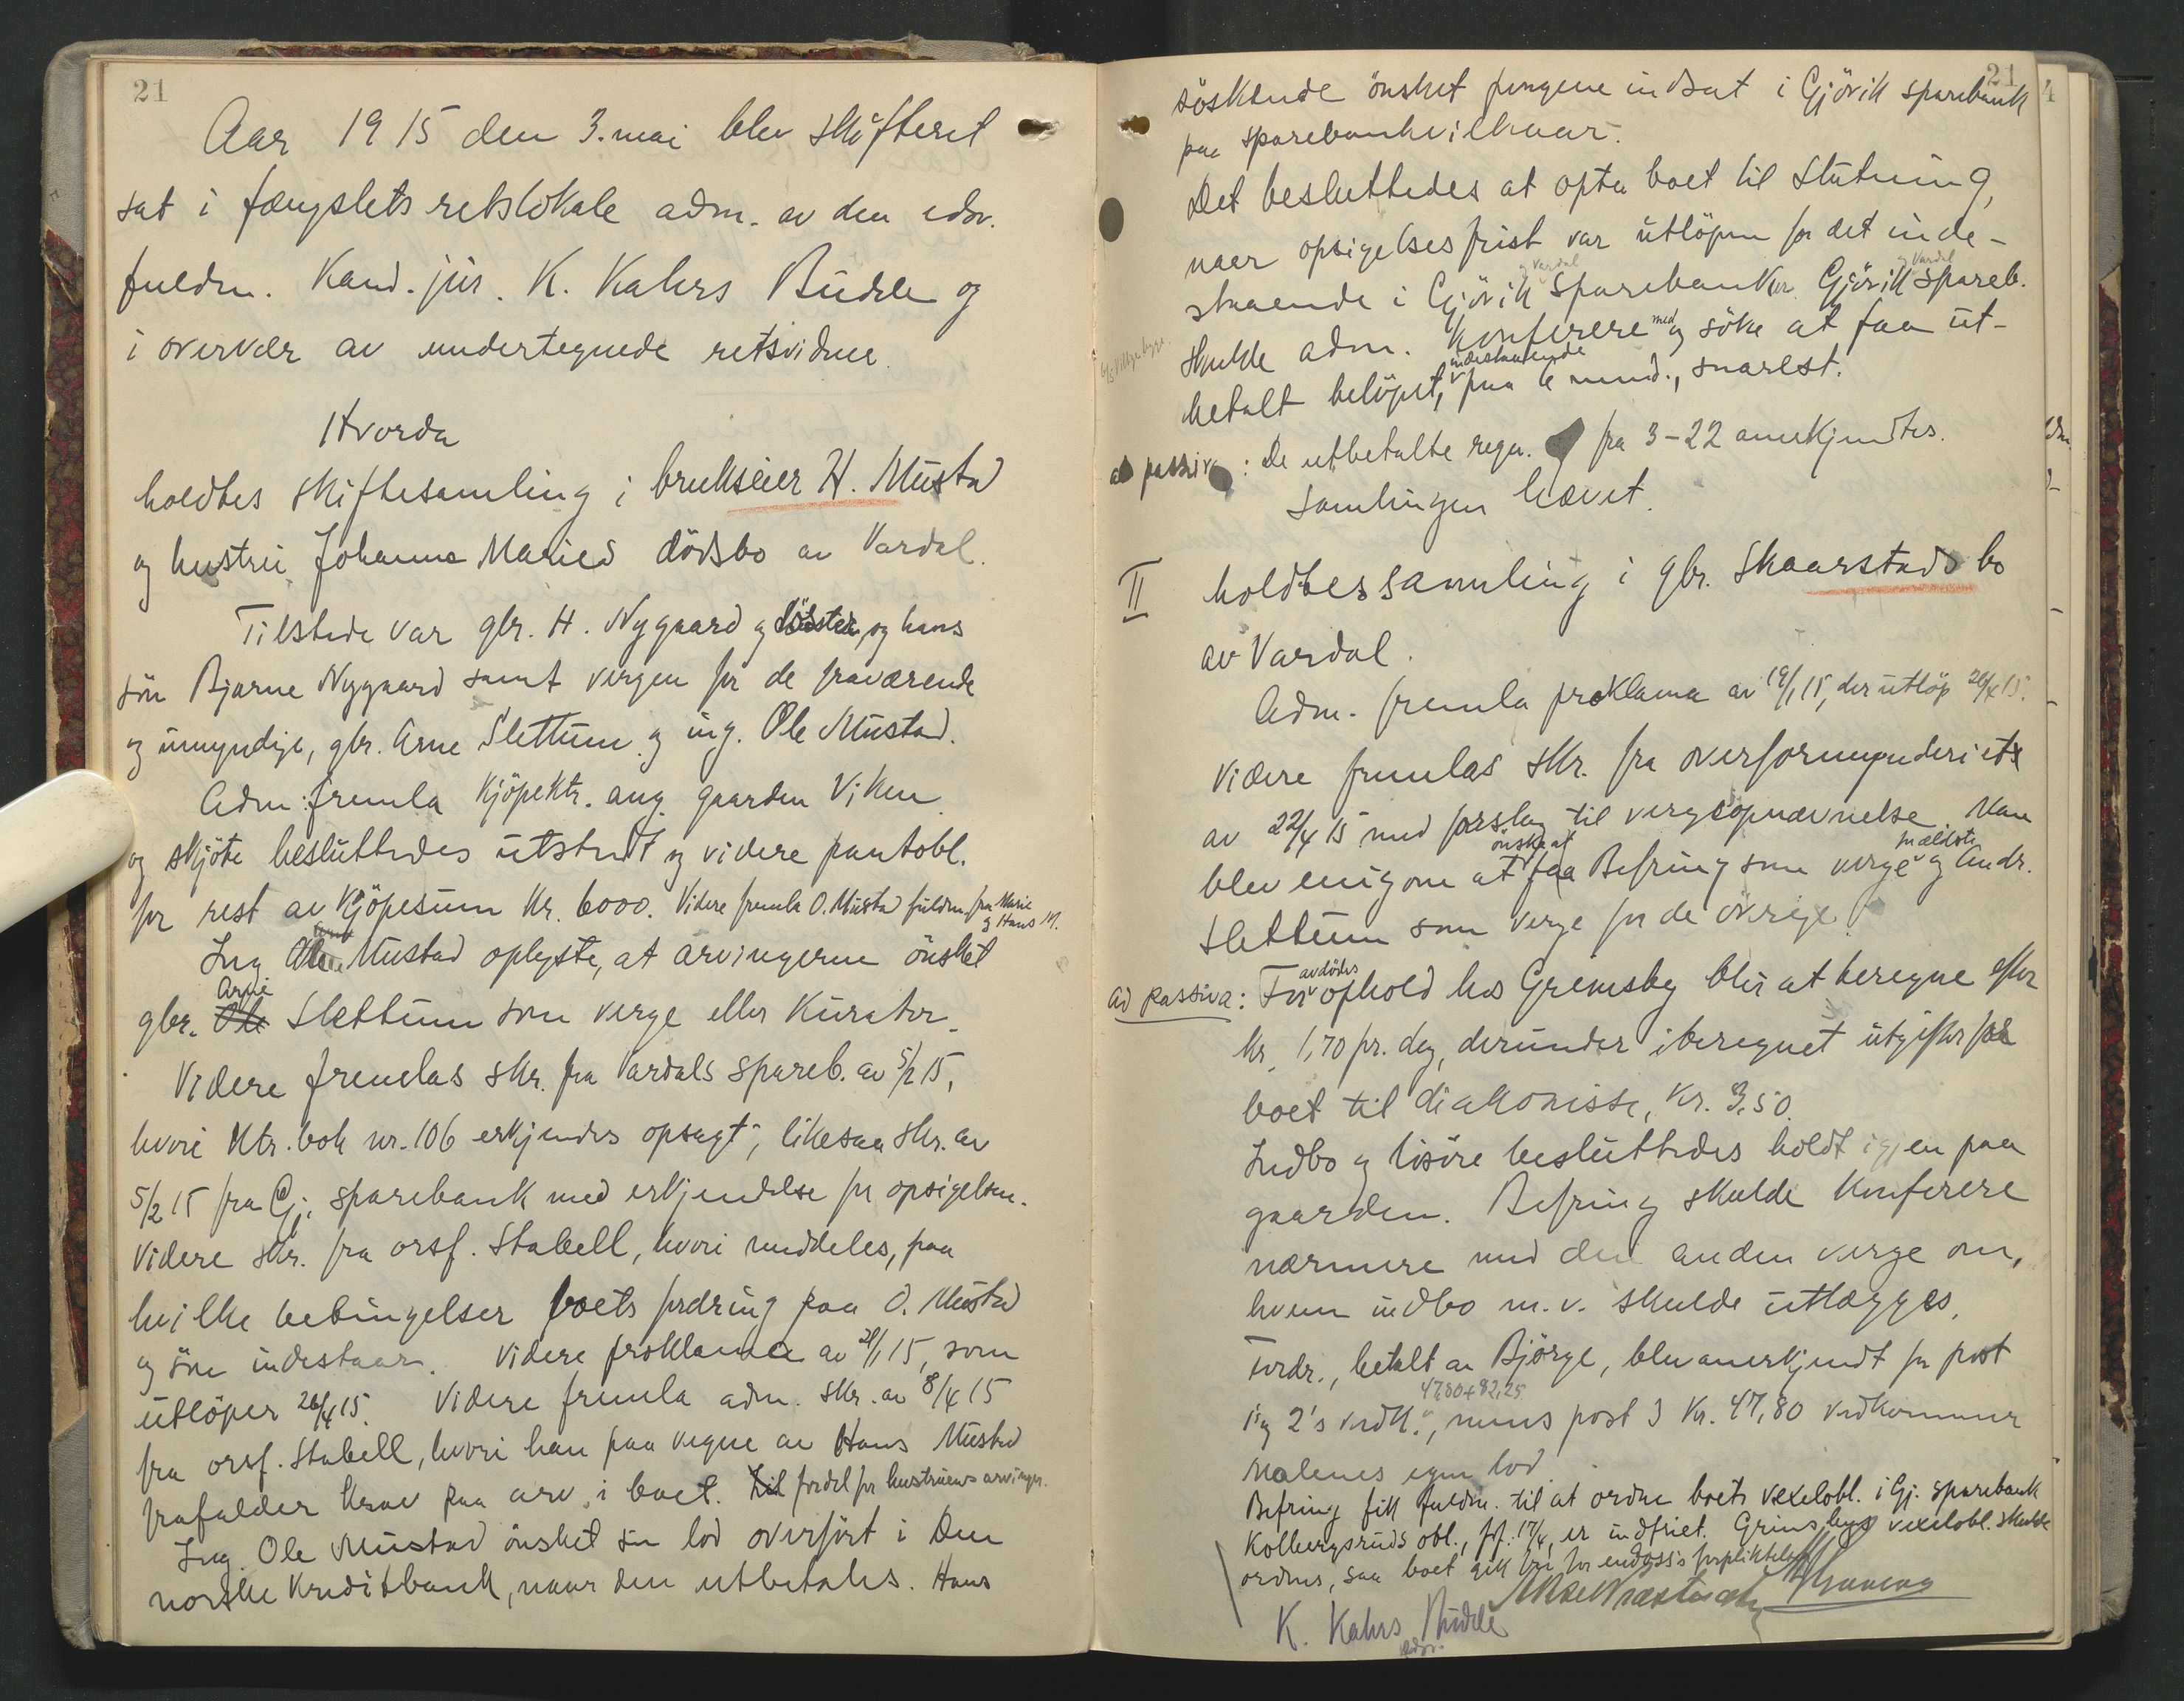 21
Aar 1915 den 3. mai blev skifteret
sat i fængslets retslokale adm. av den edsv.
fuldm. Kand. jur. K. Kahrs Budde og
i overvær av undertegnede retsvidner.
Hvorda
holdtes skiftesamling i brukseier H. Mustad
og hustru Johanne Maries dödsbo av Vardal.
Tilstede var gbr. H. Nygaard og söster, og hans
sön Bjarne Nygaard samt vergen for de fraværende
og umyndige, gbr. Arne Slettum og ing. Ole Mustad.
Adm. fremla Kjöpektr. ang. gaarden Viken
og skjöte besluttedes utstedt og videre pantobl.
for rest av Kjöpesum Kr. 6000. Videre fremla O. Mustad fuldm. fra Marie
og Hans M.
Ing. Ole Mustad oplyste, at arvingerne önsket
Arne
gbr. Ole Slettum som verge eller Kurator.
Videre fremlas skr. fra Vardals spareb. av 5/2 15,
hvori Ktr. bok nr. 106 erkjendes opsagt, likesaa skr. av
5/2 15 fra Gj. sparebank med erkjendelse for opsigelsen.
Videre skr. fra orsf. Stabell, hvori meddeles, paa
hvilke betingelser boets fordring paa O. Mustad
og sön indestaar. Videre proklama av 21/1 15, som
utlöper 26/4 15. Videre fremla adm. skr. av 8/4 15
fra orsf. Stabell, hvori han paa vegne av Hans Mustad
frafalder Krav paa arv i boet. til fordel for hustruens arvinger.
Ing. Ole Mustad önsket sin lod overfört i Den
norske Kreditbank, naar den utbetales. Hans
21
söskende önsket pengene indsat i Gjövik sparebank
paa sparebankvilkaar.
Det besluttedes at opta boet til slutning,
naar opsigelsesfrist var utlöpen for det inde-
og Vardal og Vardal
staaende i Gjövik Sparebanker. Gjövik spareb.
skulde adm. Konferere med og söke at faa ut-
indestaaende
betalt belöpet, paa 6 mnd., snarest.
ad passiva: De utbetalte regn. fra 3-22 anerkjendtes.
Samlingen hævet.
II holdtes samling i gbr. Skaarstads bo
av Vardal.
Adm. fremla proklama av 19/1 15, der utlöp 26/4 15.
Videre fremlas skr. fra overformynderiet
av 22/4 15 med forslag til vergeopnævnelse. Man
önske at mældste
blev enig om at faa Befring som verge og Andr.
Slettum som verge for de övrige.
avdödes
ad passiva: For ophold hos Gremsby blir at beregne efter
Kr. 1,70 pr. dag, derunder iberegnet utgifter for
boet til diakonisse, Kr. 3,50.
Indbo og lösöre besluttedes holdt igjen paa
gaarden. Befring skulde Konferere
nærmere med den anden verge om,
hvem indbo m.v. skulde utlægges.
Fordr., betalt av Björge, blev anerkjendt for post
47,80+82,25
1 og 2's vedk., mens post 3 Kr. 47,80 vedkommer
Malenes egen lod.
Befring fik fuldm. til at ordne boets vexelobl. i Gj. sparebank
Kolbergsruds obl., jf. 17/4, er indfriet. Grinsbys vexelobl. skulde
ordnes, saa boet gik fri for endoss's forpliktelse.
K. Kahrs Budde
edsv.